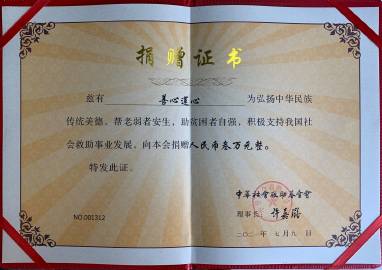 捐赠证书
兹有 善心莲心 为弘扬中华民族
传统美德,帮老弱者安生,助贫困者自强,积极支持我国社
会救助事业发展,向本会捐赠人民币叁万元整。
特发此证。
中华社会救助基金会
理事长:许嘉璐
NO.001312
二〇二一年七月九日